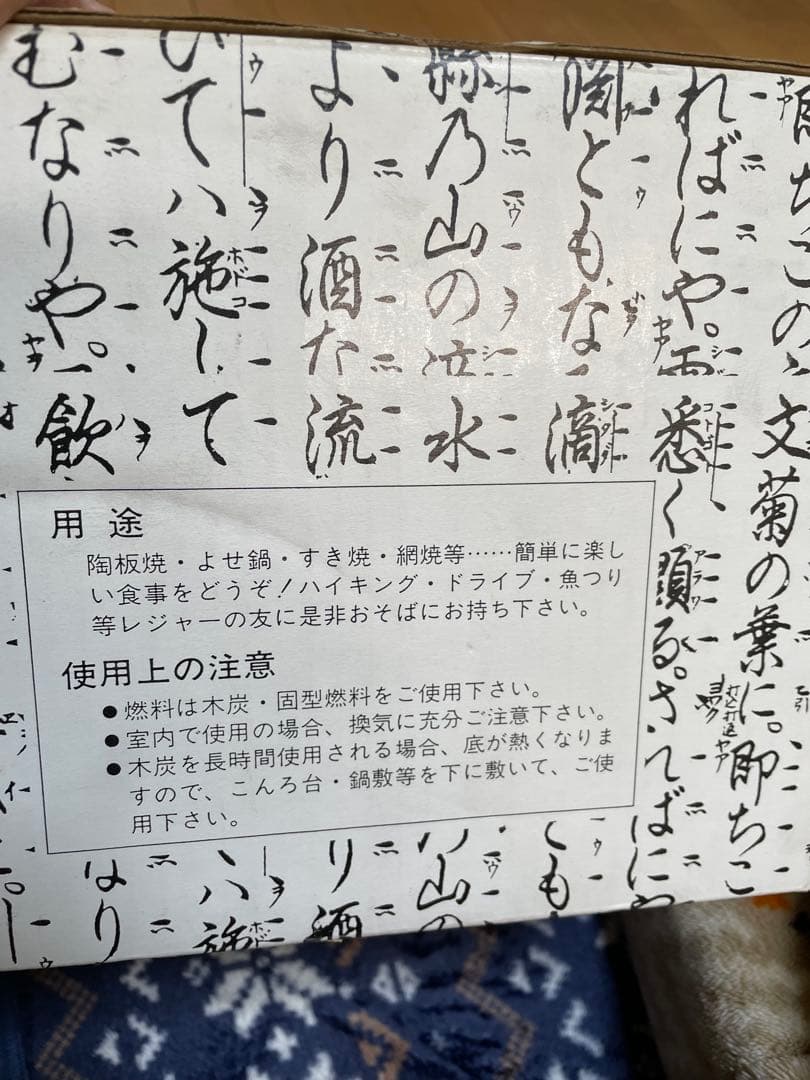 即ちこの
文菊の葉に。即ちこ
ればにや。雫
悉く顕る。さればにや
淵ともな
滴
とも
縣乃山の
水
乃山の
より酒た
流
り酒
いてハ施して
ハ施
むなりや。
飲
なり
用途
陶板焼・よせ鍋・すき焼・網焼等……簡単に楽し
い食事をどうぞ!ハイキング・ドライブ・魚つり
等レジャーの友に是非おそばにお持ち下さい。
使用上の注意
●燃料は木炭・固型燃料をご使用下さい。
●室内で使用の場合、換気に充分ご注意下さい。
●木炭を長時間使用される場合、底が熱くなりま
すので、こんろ台・鍋敷等を下に敷いて、ご使
用下さい。